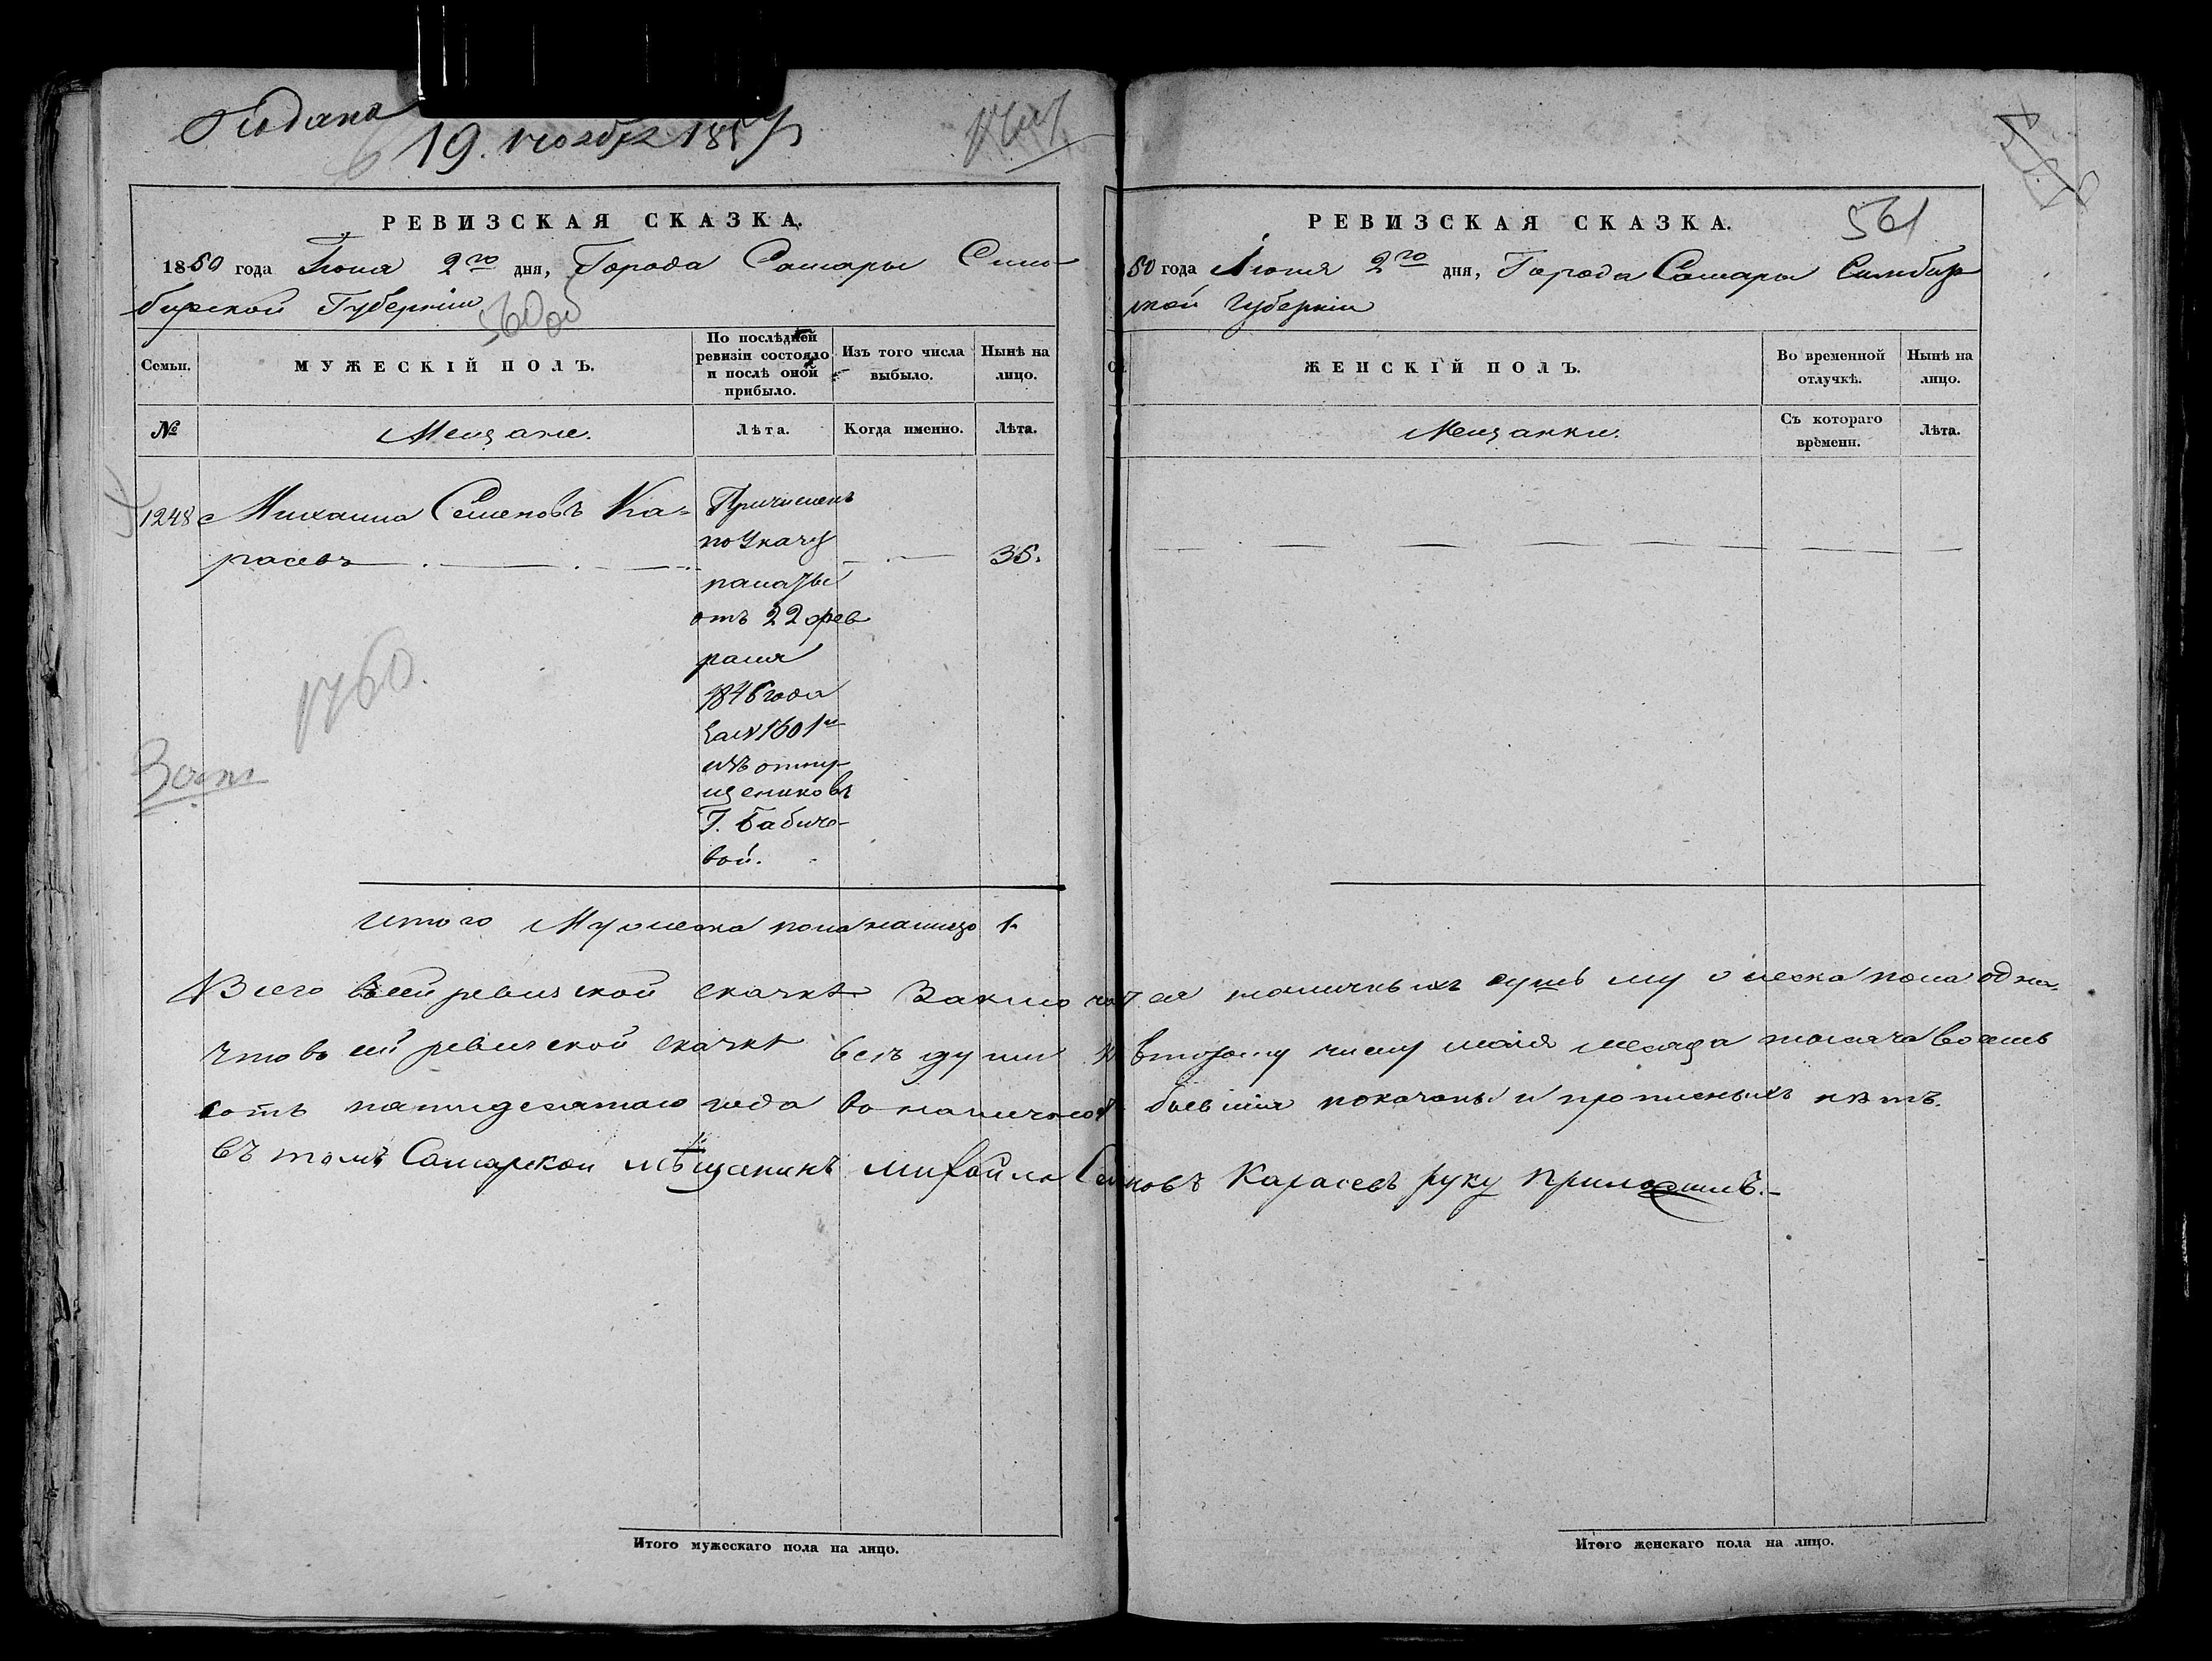 Подана
19. ноября 185
РЕВИЗСКАЯ СКАЗКА.
1850 года Іюня 2го дня, Города Самары Сим-
бирской Губерніи
560 об
Семьи.
МУЖЕСКІЙ ПОЛЪ.
По послѣдней
ревизіи состояло
и послѣ оной
прибыло.
Изъ того числа
выбыло.
Нынѣ на
лицо.
№
Мещане.
Лѣта.
Когда именно.
Лѣта.
1248
Михаила Семеновъ Ка-
расевъ
Причисленъ
по Указу
палаты
отъ 22 фев
раля
1846 года
за № 1601м
изъ отпу-
щениковъ
Г. Бабиче-
вой.
35.
1760.
Итого Мужеска пола налицо 1.
РЕВИЗСКАЯ СКАЗКА.
561
50 года Іюня 2го дня, Города Самары Симбир
ской Губерніи
ЖЕНСКІЙ ПОЛЪ.
Во временной
отлучкѣ.
Нынѣ на
лицо.
Мещанки.
Съ котораго
времени.
Лѣта.
Всего въ сей ревизской сказкѣ Заключается наличныхъ душъ мужеска пола одна.
Что въ сей ревизской сказкѣ всѣ души ко второму числу маія месяца тысяча восемь
сотъ пятидесятаго года въ наличности бывшія показаны и прописныхъ нѣтъ.
въ томъ Самарской мѣщенинъ михайла Семновъ Карасевъ руку приложилъ.
Итого мужескаго пола на лицо.
Итого женскаго пола на лицо.